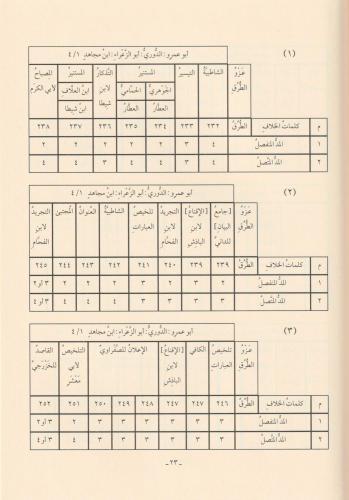 (١)
أبو عمرو: الدُّوريُّ: أبو الزَّعْراء: ابنُ مجاهدٍ ٤/١
عَزْوُ الطُّرُقِ | الشاطبيَّة | التيسيرُ | المستنيرُ | التِّذْكارُ لابنِ شِيطا | المستنيرُ | المِصباحُ لأبي الكَرَمِ
الجَوْهَريُّ العطَّارُ | الحمَّاميُّ العطَّارُ | ابنُ العلَّافِ ابنُ شِيطا
م | كلماتُ الخلافِ | الطُّرُقُ | ٢٣٢ | ٢٣٣ | ٢٣٤ | ٢٣٥ | ٢٣٦ | ٢٣٧ | ٢٣٨
١ | المدُّ المنفصلُ | ٤ | ٣ | ٢ | ٢ | ٢ | ٢ | ٢
٢ | المدُّ المتَّصلُ | ٤
(٢)
أبو عمرو: الدُّوريُّ: أبو الزَّعْراء: ابنُ مجاهدٍ ٤/١
عَزْوُ الطُّرُقِ | [جامعُ البيانِ] للدانيِّ | [الإقناعُ] لابنِ الباذِشِ | التجريدُ لابنِ الفحَّامِ | تلخيصُ العباراتِ | الشاطبيَّة | العُنوانُ | المُجتبَىٰ | التجريدُ لابنِ الفحَّامِ
م | كلماتُ الخلافِ | الطُّرُقُ | ٢٣٩ | ٢٣٩ | ٢٤٠ | ٢٤١ | ٢٤٢ | ٢٤٣ | ٢٤٤ | ٢٤٥
١ | المدُّ المنفصلُ
٢ | المدُّ المتَّصلُ
(٣)
أبو عمرو: الدُّوريُّ: أبو الزَّعْراء: ابنُ مجاهدٍ ٤/١
عَزْوُ الطُّرُقِ | تلخيصُ العباراتِ | الكافي | [الإقناعُ] لابنِ الباذِشِ | الإعلانُ للصَّفْراويِّ | التلخيصُ لأبي مَعْشَرٍ | القاصدُ للخَزْرَجيِّ
م | كلماتُ الخلافِ | الطُّرُقُ | ٢٤٦ | ٢٤٧ | ٢٤٧ | ٢٤٨ | ٢٤٩ | ٢٥٠ | ٢٥١ | ٢٥٢
١ | المدُّ المنفصلُ
٢ | المدُّ المتَّصلُ
-٢٣-